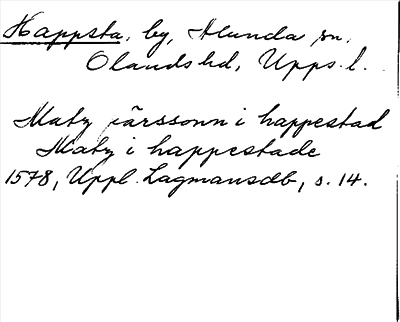 Happsta, by, Alunda sn,
Olands hd, Upps. l.
Matz lärssonn i happestad
Matz i happestade
1578, Uppl. Lagmansdb, s. 14.